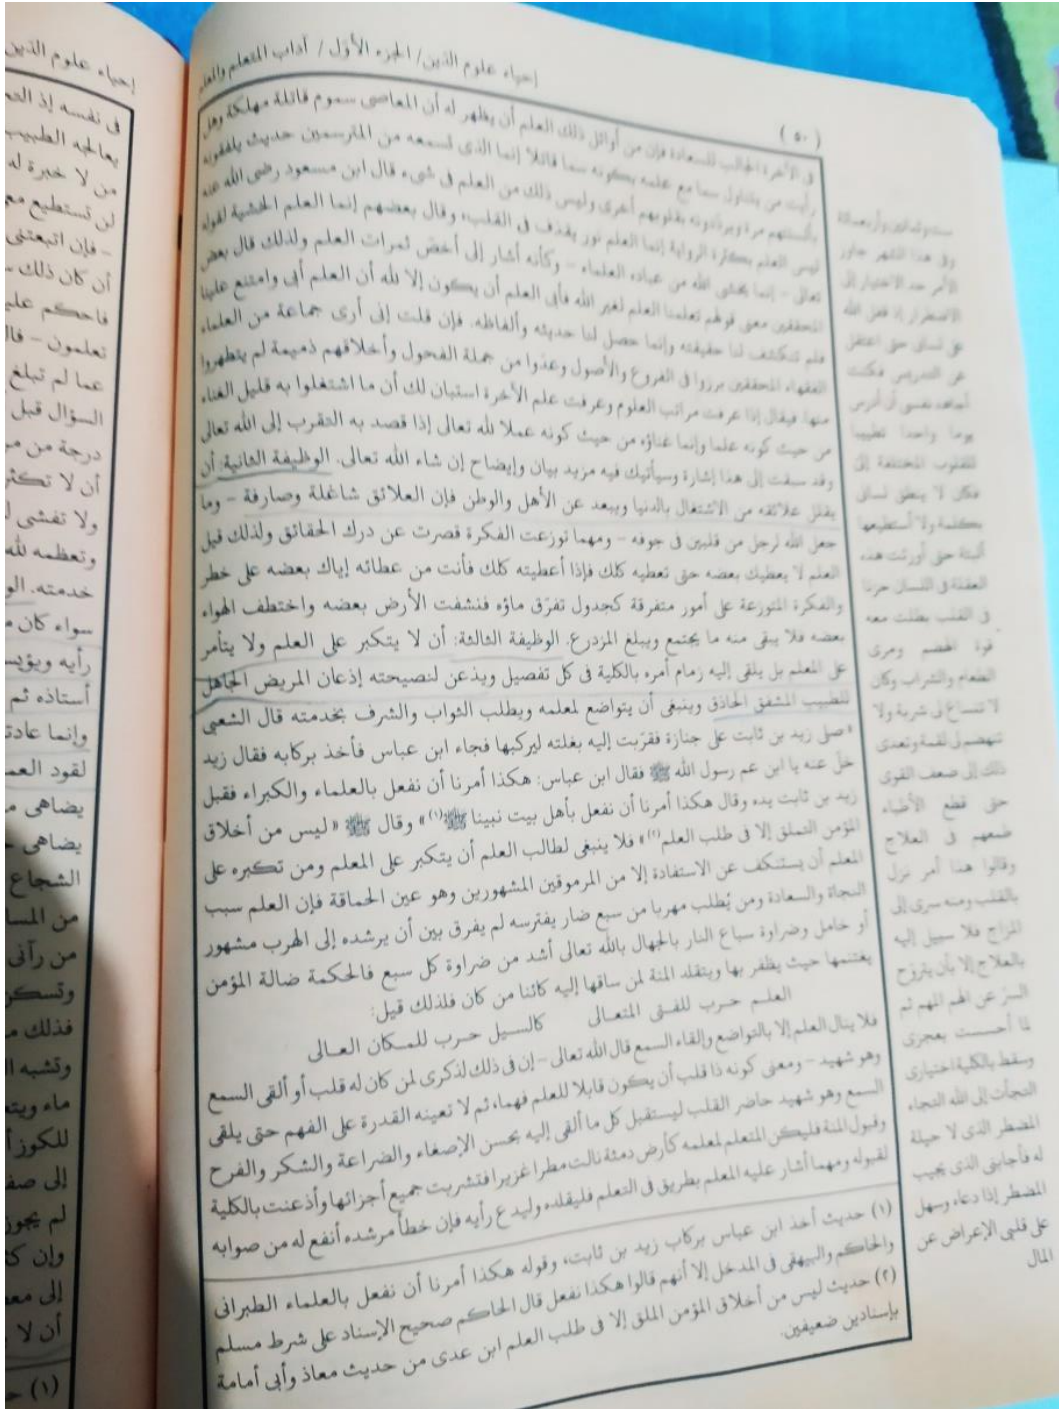 إحياء علوم الدين / الجزء الأول / آداب المتعلم والمعلم
( ٥٠ )
في الآخرة الجالب للسعادة فإن من أوائل ذلك العلم أن يظهر له أن المعاصى سموم قاتلة مهلكة وهل
رأيت من يتناول سما مع علمه بكونه سما قاتلا إنما الذى تسمعه من المترسمين حديث يلفقونه
بألسنتهم مرة ويرددونه بقلوبهم أخرى وليس ذلك من العلم فى شىء قال ابن مسعود رضى الله عنه
ليس العلم بكثرة الرواية إنما العلم نور يقذف فى القلب، وقال بعضهم إنما العلم الخشية لقوله
تعالى - إنما يخشى الله من عباده العلماء - وكأنه أشار إلى أخص ثمرات العلم ولذلك قال بعض
المحققين معنى قولهم تعلمنا العلم لغير الله فأبى العلم أن يكون إلا لله أن العلم أبى وامتنع علينا
فلم تنكشف لنا حقيقته وإنما حصل لنا حديثه وألفاظه. فإن قلت إنى أرى جماعة من العلماء
الفقهاء المحققين برزوا فى الفروع والأصول وعدوا من جملة الفحول وأخلاقهم ذميمة لم يتطهروا
منها. فيقال إذا عرفت مراتب العلوم وعرفت علم الآخرة استبان لك أن ما اشتغلوا به قليل الغناء
من حيث كونه علما وإنما غناؤه من حيث كونه عملا لله تعالى إذا قصد به التقرب إلى الله تعالى
وقد سبقت إلى هذا إشارة وسيأتيك فيه مزيد بيان وإيضاح إن شاء الله تعالى. الوظيفة الثانية: أن
يقلل علائقه من الاشتغال بالدنيا ويبعد عن الأهل والوطن فإن العلائق شاغلة وصارفة - وما
جعل الله لرجل من قلبين فى جوفه - ومهما توزعت الفكرة قصرت عن درك الحقائق ولذلك قيل
العلم لا يعطيك بعضه حتى تعطيه كلك فإذا أعطيته كلك فأنت من عطائه إياك بعضه على خطر
والفكرة المتوزعة على أمور متفرقة كجدول تفرّق ماؤه فنشفت الأرض بعضه واختطف الهواء
بعضه فلا يبقى منه ما يجتمع ويبلغ المزدرع. الوظيفة الثالثة: أن لا يتكبر على العلم ولا يتأمر
على المعلم بل يلقى إليه زمام أمره بالكلية فى كل تفصيل ويذعن لنصيحته إذعان المريض الجاهل
للطبيب المشفق الحاذق وينبغى أن يتواضع لمعلمه ويطلب الثواب والشرف بخدمته قال الشعبى
«صلى زيد بن ثابت على جنازة فقرّبت إليه بغلته ليركبها فجاء ابن عباس فأخذ بركابه فقال زيد
خلّ عنه يا ابن عم رسول الله ﷺ فقال ابن عباس: هكذا أمرنا أن نفعل بالعلماء والكبراء فقبل
زيد بن ثابت يده وقال هكذا أمرنا أن نفعل بأهل بيت نبينا ﷺ(١)» وقال ﷺ «ليس من أخلاق
المؤمن التملق إلا فى طلب العلم(٢)» فلا ينبغى لطالب العلم أن يتكبر على المعلم ومن تكبره على
المعلم أن يستنكف عن الاستفادة إلا من المرموقين المشهورين وهو عين الحماقة فإن العلم سبب
النجاة والسعادة ومن يُطلب مهربا من سبع ضار يفترسه لم يفرق بين أن يرشده إلى الهرب مشهور
أو خامل وضراوة سباع النار بالجهال بالله تعالى أشد من ضراوة كل سبع فالحكمة ضالة المؤمن
يغتنمها حيث يظفر بها ويتقلد المنة لمن ساقها إليه كائنا من كان فلذلك قيل:
العلـم حـرب للفـتى المتعـالى كالسـيل حـرب للمـكان العـالى
فلا ينال العلم إلا بالتواضع وإلقاء السمع قال الله تعالى - إن فى ذلك لذكرى لمن كان له قلب أو ألقى السمع
وهو شهيد - ومعنى كونه ذا قلب أن يكون قابلا للعلم فهما، ثم لا تعينه القدرة على الفهم حتى يلقى
السمع وهو شهيد حاضر القلب ليستقبل كل ما ألقى إليه بحسن الإصغاء والضراعة والشكر والفرح
وقبول المنة فليكن المتعلم لمعلمه كأرض دمثة نالت مطرا غزيرا فتشربت جميع أجزائها وأذعنت بالكلية
لقبوله ومهما أشار عليه المعلم بطريق فى التعلم فليقلده وليدع رأيه فإن خطأ مرشده أنفع له من صوابه
(١) حديث أخذ ابن عباس بركاب زيد بن ثابت، وقوله هكذا أمرنا أن نفعل بالعلماء الطبرانى
والحاكم والبيهقى فى المدخل إلا أنهم قالوا هكذا نفعل قال الحاكم صحيح الإسناد على شرط مسلم
(٢) حديث ليس من أخلاق المؤمن الملق إلا فى طلب العلم ابن عدى من حديث معاذ وأبى أمامة
بإسنادين ضعيفين.
ست وثمانين وأربعمائة
وفى هذا الشهر جاوز
الأمر حد الاختيار إلى
الاضطرار إذ قفل الله
على لسانى حتى اعتقل
عن التدريس فكنت
أجاهد نفسى أن أدرس
يوما واحدا تطييبا
للقلوب المختلفة إلى
فكان لا ينطق لسانى
بكلمة ولا أستطيعها
ألبتة حتى أورثت هذه
العقلة فى اللسان حزنا
فى القلب بطلت معه
قوة الهضم ومرى
الطعام والشراب وكان
لا تنساغ لى شربة ولا
تنهضم لى لقمة وتعدى
ذلك إلى ضعف القوى
حتى قطع الأطباء
طمعهم فى العلاج
وقالوا هذا أمر نزل
بالقلب ومنه سرى إلى
المزاج فلا سبيل إليه
بالعلاج إلا بأن يتروّح
السرّ عن الهم المهم ثم
لما أحسست بعجزى
وسقط بالكلية اختيارى
التجأت إلى الله التجاء
المضطر الذى لا حيلة
له فأجابنى الذى يجيب
المضطر إذا دعاه وسهل
على قلبى الإعراض عن
المال
إحياء علوم الدين
فى نفسه إذ
يعالجه الطبيب
من لا خبرة له
لن تستطيع
- فإن اتبعتنى
أن كان ذلك -
فاحكم
تعلمون -
عما لم تبلغ
السؤال قبل
درجة من
أن لا
ولا تفشى
وتعظمه لله
خدمته.
سواء كان
رأيه
أستاذه ثم
وإنما
لقود
يضاهى
يضاهى
الشجاع
من
من رآنى
فذلك
وتشبه
ماء
إلى
لم يجوز
وإن
إلى
أن لا
(١)